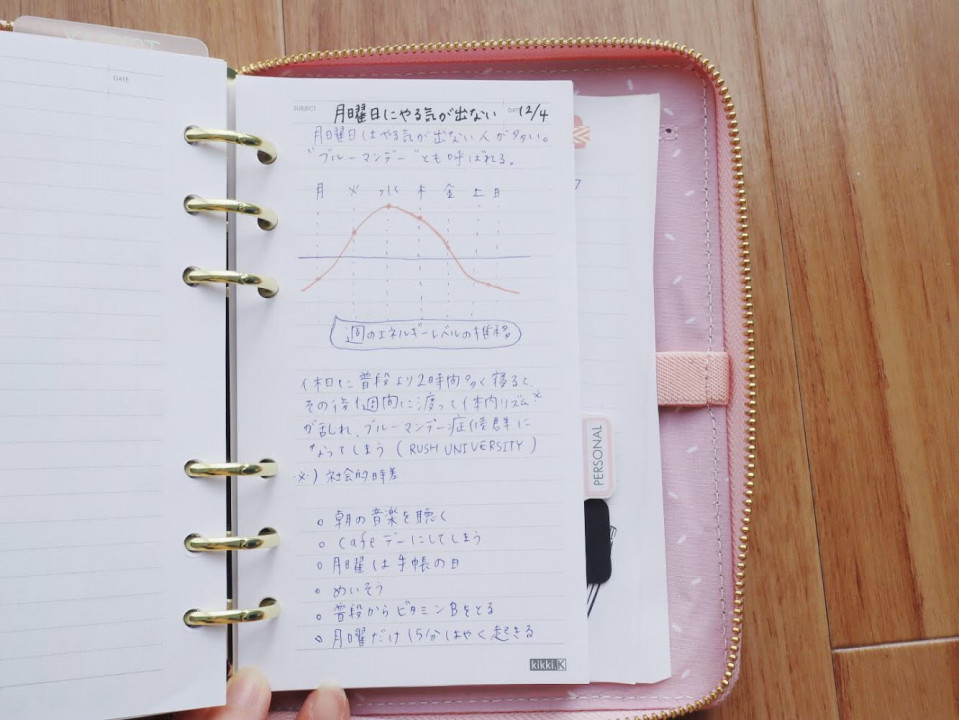 DATE
SUBJECT 月曜日にやる気が出ない DATE 12/4
月曜日はやる気が出ない人が多い。
"ブルーマンデー"とも呼ばれる。
月 火 水 木 金 土 日
週のエネルギーレベルの推移
休日に普段より2時間多く寝ると、
その後1週間に渡って体内リズム※
が乱れ、ブルーマンデー症候群に
なってしまう (RUSH UNIVERSITY)
※) 社会的時差
○ 朝の音楽を聴く
○ Cafeデーにしてしまう
○ 月曜は手帳の日
○ めいそう
○ 普段からビタミンBをとる
○ 月曜だけ15分はやく起きる
kikki.K
PERSONAL
7